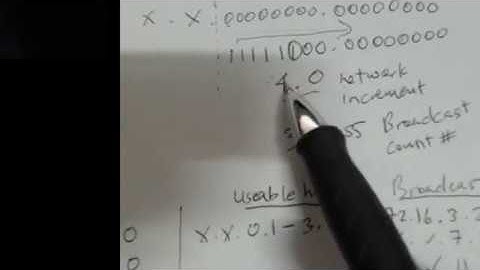 x . x . 00000000.00000000
11111000.00000000
4.0 network
increment
55 Broadcast
count #
Useable Broadcas
0 x.x.0.1-3. 72.16.3.2
0 .7.